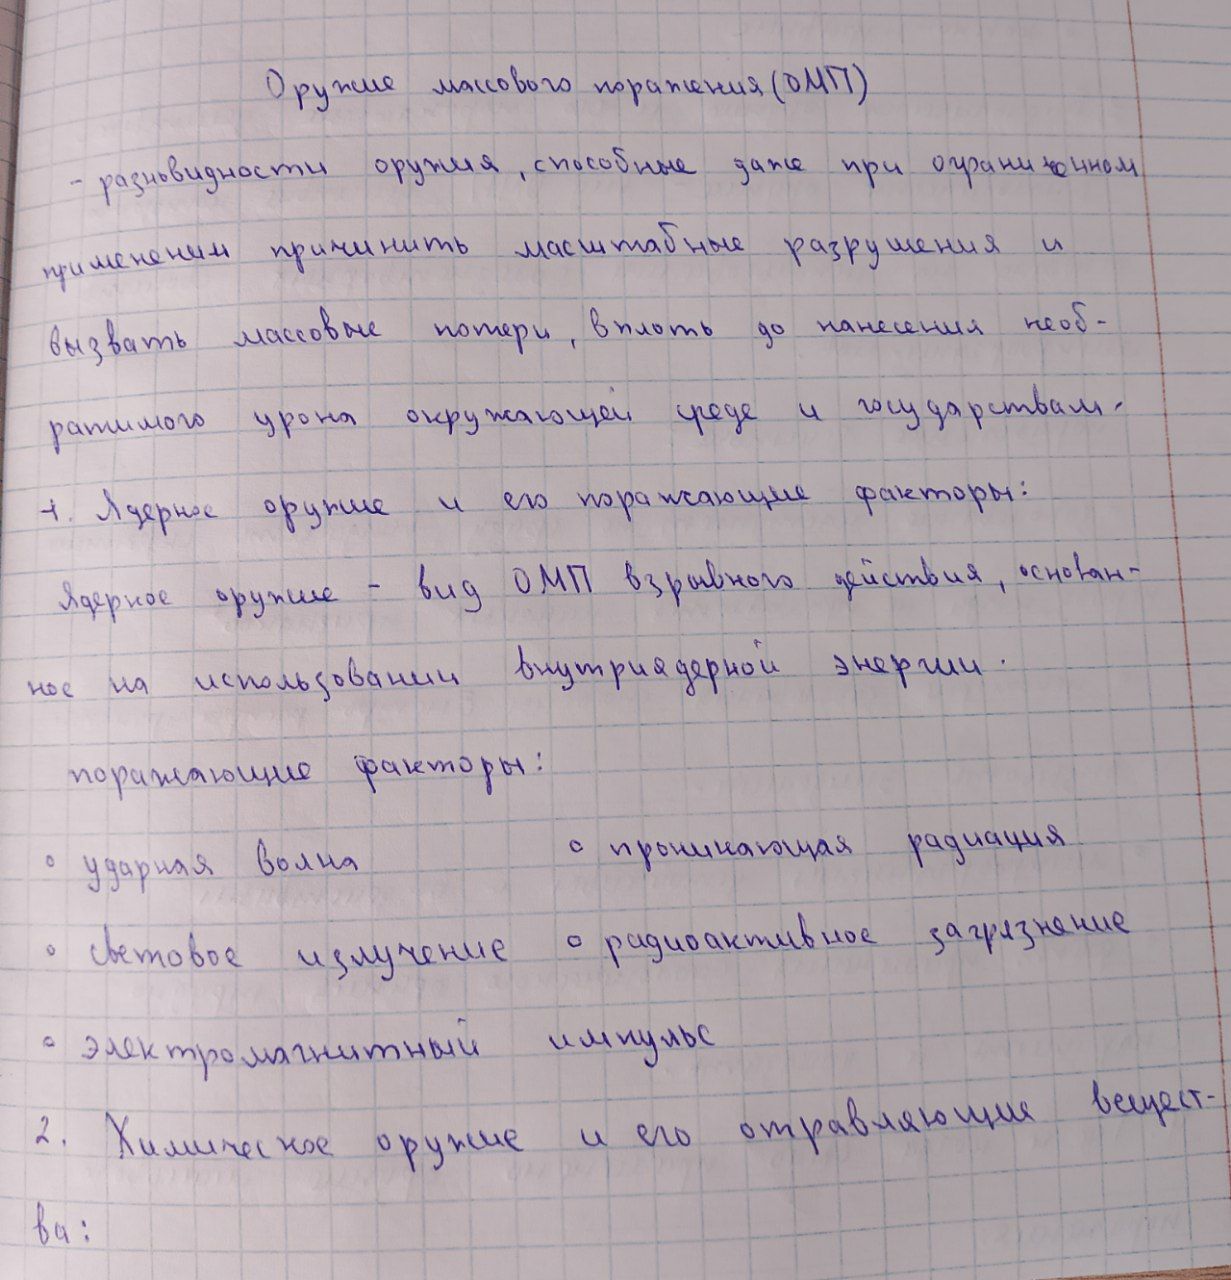 Оружие массового поражения (ОМП)
- разновидности оружия, способные даже при ограниченном
применении причинить масштабные разрушения и
вызвать массовые потери, вплоть до нанесения необ-
ратимого урона окружающей среде и государствам.
1. Ядерное оружие и его поражающие факторы:
Ядерное оружие - вид ОМП взрывного действия, основан-
ное на использовании внутриядерной энергии.
поражающие факторы:
° ударная волна ° проникающая радиация
° световое излучение ° радиоактивное загрязнение
° электромагнитный импульс
2. Химическое оружие и его отравляющие вещест-
ва: